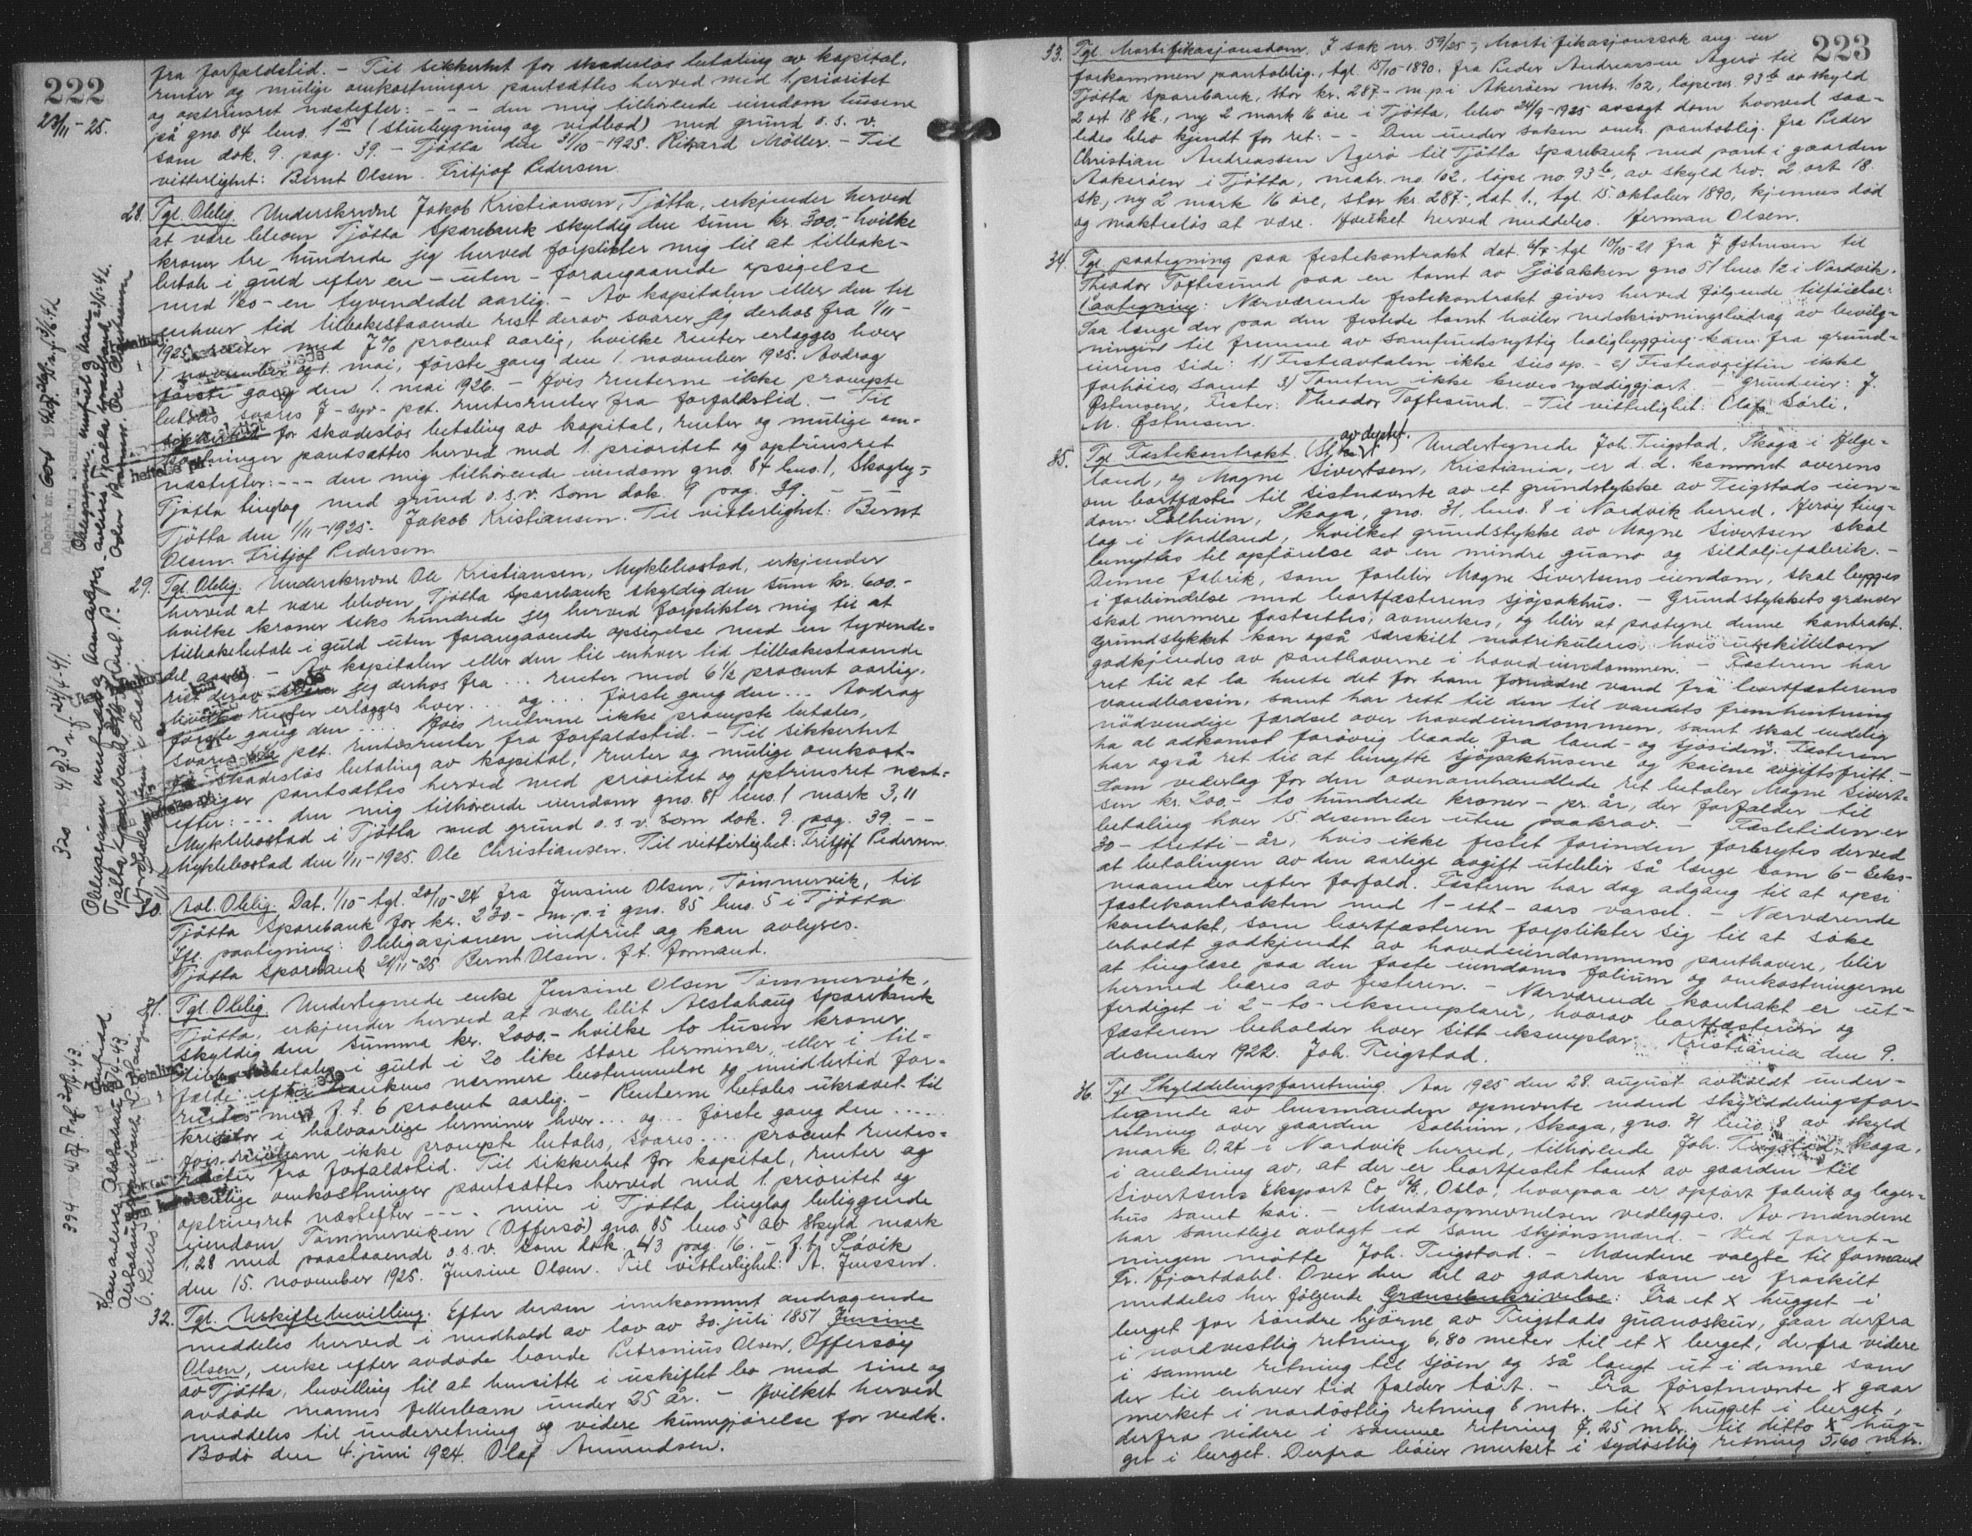 222
23/11-25.
fra forfaldstid. - Til sikkerhet for skadeslös betaling av kapital,
renter og mulige omkostninger pantsættes herved med 1 prioritet
og optrinsret næstefter: - - - den mig tilhörende eiendom husene
på gno. 84 bno. 1 (stuebygning og vedbod) med grund o.s.v.
som dok. 9. pag. 39. - Tjötta den 31/10-1925. Rikard Möller. - Til
vitterlighet: Bernt Olsen. Fritjof Pedersen.
28. Tgl. Oblig. Underskrevne Jakob Kristiansen, Tjötta, erkjender herved
at være bleven Tjötta Sparebank skyldig den sum kr. 300.- hvilke
kroner tre hundrede jeg herved forplikter mig til at tilbake-
betale i guld efter en - uten - forangaaende opsigelse
med 1/20 - en tyvendedel aarlig. - Av kapitalen eller den til
enhver tid tilbakestaaende rest derav svarer jeg derhos fra 1/11-
1925 renter med 7% procent aarlig, hvilke renter erlægges hver
1 november og 1. mai, förste gang den 1. november 1925. Avdrag
förste gang den 1. mai 1926. - Hvis renterne ikke prompte
betales svares 7 - syv - pct. rentesrenter fra forfaldstid. - Til
sikkerhet for skadeslös betaling av kapital, renter og mulige om-
kostninger pantsættes herved med 1 prioritet og optrinsret
næstefter: - - - den mig tilhörende eiendom gno. 84 bno. 1, Skogly -
Tjötta tinglag med grund o.s.v. som dok. 9 pag. 39. -
Tjötta den 1/11-1925. Jakob Kristiansen. Til vitterlighet: Bernt
Olsen. Fritjof Pedersen.
29. Tgl. Oblig. Underskrevne Ole Kristiansen, Myklebostad, erkjender
herved at være bleven Tjötta Sparebank skyldig den sum kr. 600.-
hvilke kroner seks hundrede jeg herved forplikter mig til at
tilbakebetale i guld uten forangaaende opsigelse med en tyvende-
del aarlig. - Av kapitalen eller den til enhver tid tilbakestaaende
rest derav svarer jeg derhos fra ... renter med 6 1/2 procent aarlig,
hvilke renter erlægges hver ... og ... förste gang den ... Avdrag
förste gang den .... Hvis renterne ikke prompte betales,
svares pct. rentesrenter fra forfaldstid. - Til sikkerhet
for skadeslös betaling av kapital, renter og mulige omkost-
ninger pantsættes herved med prioritet og optrinsret næst-
efter: - - - den mig tilhörende eiendom gno. 81 bno. 1 mark 3,11
Myklebostad i Tjötta med grund o.s.v. som dok. 9. pag. 39. - -
Myklebostad den 1/11-1925. Ole Christiansen. Til vitterlighet: Fritjof Pedersen.
30. Avl. Oblig. Dat. 1/10- tgl. 20/10-24 fra Jensine Olsen, Tömmervik, til
Tjötta Sparebank for kr. 230.- m.p. i gno. 85 bno. 5 i Tjötta
Ifl. paategning: Obligasjonen indfriet og kan avlyses.
Tjötta Sparebank 21/11-25 Bernt Olsen. f.t. formand.
31. Tgl. Oblig. Undertegnede enke Jensine Olsen Tömmervik,
Tjötta, erkjender herved at være blit Alstahaug Sparebank
skyldig den summa kr. 2000.- hvilke to tusen kroner
tilbakebetales i guld i 20 like store terminer, eller i til-
fælde efter bankens nærmere bestemmelse og imidlertid for-
rentes med f.t. 6 procent aarlig. - Renterne betales ukrævet til
kreditor i halvaarlige terminer hver ... og ... förste gang den .....
Hvis renterne ikke prompte betales, svares .... procent rentes-
renter fra forfaldstid. Til sikkerhet for kapital, renter og
mulige omkostninger pantsættes herved med 1 prioritet og
optrinsret næstefter - - - - min i Tjötta tinglag beliggende
eiendom Tömmerviken (Offersö) gno. 85 bno. 5 av skyld mark
1,28 med paastaaende o.s.v. som dok. 43 pag. 16. - f.t. Sövik
den 15. november 1925. Jensine Olsen. Til vitterlighet: A. Jenssen.
32. Tgl. Uskiftebevilling. Efter derom innkommet andragende
meddeles herved i medhold av lov av 30. juli 1851 Jensine
Olsen, enke efter avdöde bonde Petronius Olsen, Offersöy
av Tjötta, bevilling til at hensitte i uskiftet bo med sine og
avdöde mannes fellesbarn under 25 år. - Hvilket herved
meddeles til underretning og videre kunngjörelse for vedk.
Bodö den 4. juni 1924. Olaf Amundsen.
223
33. Tgl. Mortifikasjonsdom. I sak nr. 59/25 -, Mortifikasjonssak ang. en
forkommen pantoblig., tgl. 15/10-1890. fra Peder Andreassen Agerö til
Tjötta Sparebank, stor kr. 287.- m.p. i Akeröen mtr. 102, löpenr. 93b av skyld
2 ort 18 sk., ny 2 mark 16 öre i Tjötta, blev 24/9-1925 avsagt dom hvorved saa-
ledes blev kjendt for ret: - - Den under saken omh. pantoblig. fra Peder
Christian Andreassen Agerö til Tjötta Sparebank med pant i gaarden
Aakeröen i Tjötta, matr. no. 102. löpe no. 93b, av skyld rev. 2 ort 18.
sk., ny 2 mark 16 öre, stor kr. 287.-, dat. 1., tgl. 15. oktober 1890, kjennes död
og makteslös at være. Hvilket herved meddeles. Herman Olsen.
34. Tgl. paategning paa festekontrakt dat. 4/8 - tgl 10/10-21 fra J Östensen til
Theodor Toftesund paa en tomt av Sjöbakken gno 51 bno. 12 i Nordvik.
Paategning: Nærværende festekontrakt gives herved fölgende tilföielse:
Saa længe der paa den festede tomt hviler nedskrivningsbidrag av bevilg-
ningen til fremme av samfundsnyttig boligbygging kan fra grund-
eierens side: 1) Festeavtalen ikke sies op. - 2) Festeavgiften ikke
forhöies, samt 3) Tomten ikke kræves ryddiggjort. - Grundeier: J
Östensen, Fester: Theodor Toftesund. - Til vitterlighet: Olaf Sörli.
M. Östensen.
35. Tgl. Fæstekontrakt. Undertegnede Joh. Tugstad, Skaga i Helge-
land, og Magne Sivertsen, Kristiania, er d.d. kommet overens
om bortfæste til sistnævnte av et grundstykke av Tugstads eien-
dom Solheim, Skaga, gno. 31 bno. 8 i Nordvik herred, Heröy ting-
lag i Nordland, hvilket grundstykke av Magne Sivertsen skal
benyttes til opförelse av en mindre guano og sildoljefabrik. -
Denne fabrik, som forblir Magne Sivertsens eiendom, skal bygges
i forbindelse med bortfæsterens sjöpakhus. - Grundstykkets grænser
skal nærmere fastsettes, avmerkes, og blir at paategne denne kontrakt.
Grundstykket kan også særskilt matrikuleres, hvis utskillelsen
godkjendes av panthaverne i hovedeiendommen. - Fæsteren har
ret til at la hente det for ham fornödne vand fra bortfæsterens
vandbassin, samt har rett til den til vandets fremhentning
nödvendige færdsel over hovedeiendommen, samt skal endelig
ha al adkomst forövrig baade fra land- og sjösiden. Fæsteren
har også ret til at benytte sjöpakhusene og kaiene avgiftsfritt. -
Som vederlag for den ovenomhandlede ret betaler Magne Sivert-
sen kr. 200.- to hundrede kroner - pr. år, der forfalder til
betaling hver 15 desember uten paakrav. - Fæstetiden er
30 - tretti - år, hvis ikke festet forinden forbrytes derved
at betalingen av den aarlige avgift utebliv så længe som 6 - seks-
maaneder efter forfald. Fæsteren har dog adgang til at opsi
fæstekontrakten med 1 - ett - aars varsel. - Nærværende
kontrakt, som bortfæsteren forplikter sig til at söke
erholdt godkjendt av hovedeiendommens panthavere, blir
at tinglæse paa den faste eiendoms folium og omkostningerne
hermed bæres av fæsteren. - Nærværende kontrakt er ut-
ferdiget i 2 - to - eksemplarer, hvorav bortfæsteren og
fæsteren beholder hver sitt eksemplar. Kristiania den 9.
december 1922. Joh. Tugstad.
36. Tgl. Skylddelingsforretning. Aar 1925 den 28. august avholdt under-
tegnede av lensmanden opnevnte mænd skylddelingsfor-
retning over gaarden Solheim, Skaga, gno. 31 bno. 8 av skyld
mark 0,24 i Nordvik herred, tilhörende Joh. Tugstad, Skaga,
i anledning av, at der er bortfestet tomt av gaarden til
Sivertsens Eksport Co A/S, Oslo, hvorpaa er opfört fabrik og lager-
hus samt kai. - Mændsopnevnelsen vedlegges. Av mændene
har samtlige avlagt ed som skjönsmænd. - Ved forret-
ningen mötte Joh. Tugstad. - Mændene valgte til formand
Fr. Fjortdahl. Over den del av gaarden som er fraskilt
meddeles her fölgende Grænsebeskrivelse: Fra et x hugget i
berget for söndre hjörne av Tugstads guanoskur, gaar derfra
i nordvestlig retning 6,80 meter til et x berget, derfra videre
i samme retning til sjöen og så langt ut i denne som
der til enhver tid falder tört. - Fra förstnevnte x gaar
merket i nordöstlig retning 6 mtr. til x hugget i berget,
derfra videre i samme retning 7,25 mtr. til ditto x hug-
get i berget. Derfra böier merket i sydöstlig retning 5,60 mtr.